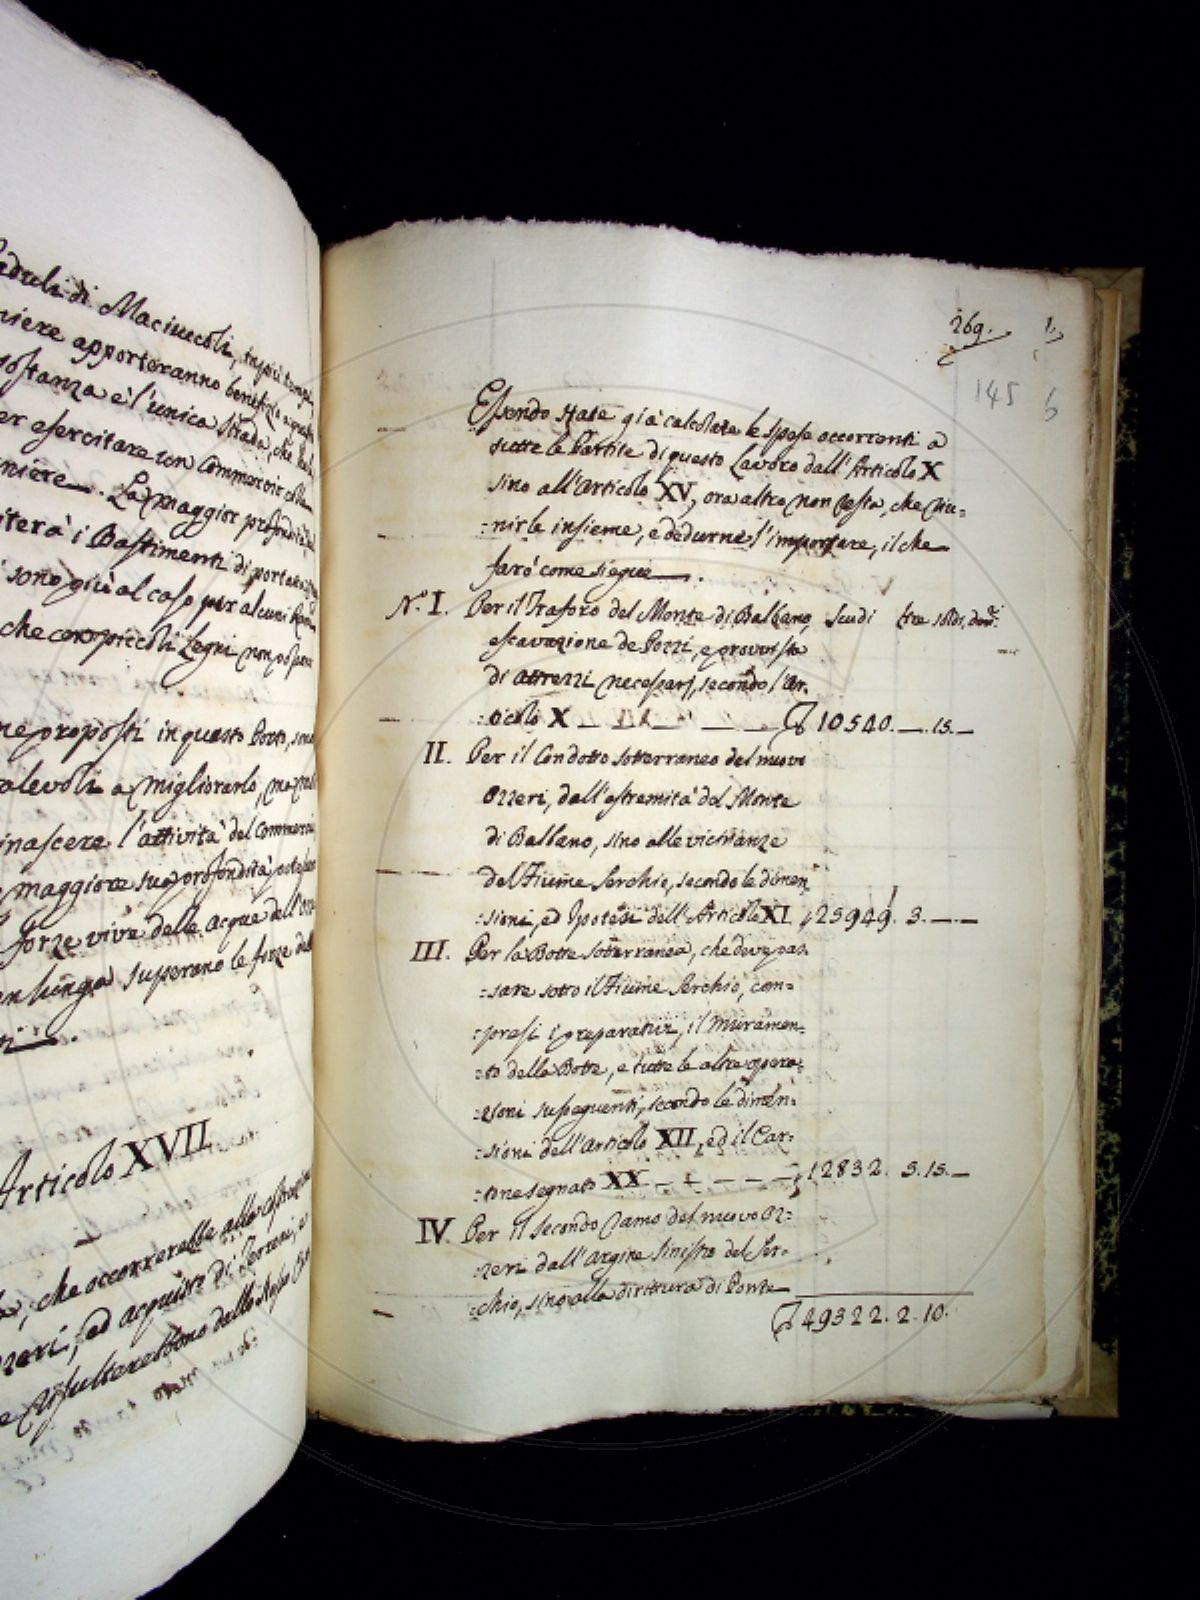 Paduli di Maciuccoli,
niere apporteranno benefizio a questo
sostanza è l'unica strada, che
er esercitare un Commercio colle
niere. La maggior profondità
iterà i Bastimenti di portata
sono più al caso per alcuni
che con piccoli Legni non
ne proposti in questo Porto, sono
alevoli a migliorarlo, ma
inascere l'attività del Commercio
maggiore sua profondità
forze vive delle acque dell'
an lunga superano le forze del
ti.
Articolo XVII
, che occorrerebbe alla
zzeri, ed acquisto di Terreni, e
e risulterebbono dallo stesso
269.
145
Essendo state già calcolate le spese occorrenti a
tutte le Partite di questo Lavoro dall'Articolo X
sino all'Articolo XV, ora altro non resta, che riu=
=nirle insieme, e dedurne l'importare, il che
farò come siegue.
N.º I. Per il Traforo del Monte di Balbano, Scudi Lire soldi, den.ri
escavazione de Pozzi, e provvista
di attrezzi necessarj, secondo l'Ar.
=ticolo X 10540. — 15. —
II. Per il Condotto sotterraneo del nuovo
Ozzeri, dall'estremità del Monte
di Balbano, sino alle vicinanze
del Fiume Serchio, secondo le dimen
=sioni, ed Ipotesi dell'Articolo XI. 25949. 3. — —
III. Per la Botte sotterranea, che deve pas.
=sare sotto il Fiume Serchio, com=
=presi i preparativi, il Muramen=
=to della Botte, e tutte le altre opera=
=zioni susseguenti, secondo le dimen=
=sioni dell'Articolo XII, ed il Car=
=tone segnato XX 12832. 5. 15. —
IV. Per il secondo ramo del nuovo Oz=
=zeri dall'argine sinistro del Ser=
=chio, sino alla dirittura di Ponte
49322. 2. 10.